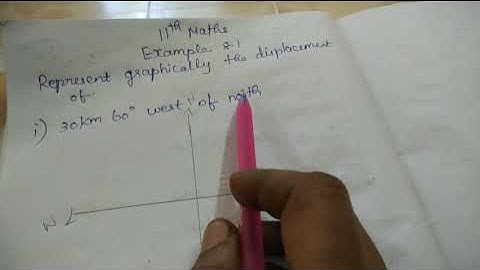 11th Maths
Example 8.1
Represent graphically the displacement
of
i) 30km 60° west of north
N
W